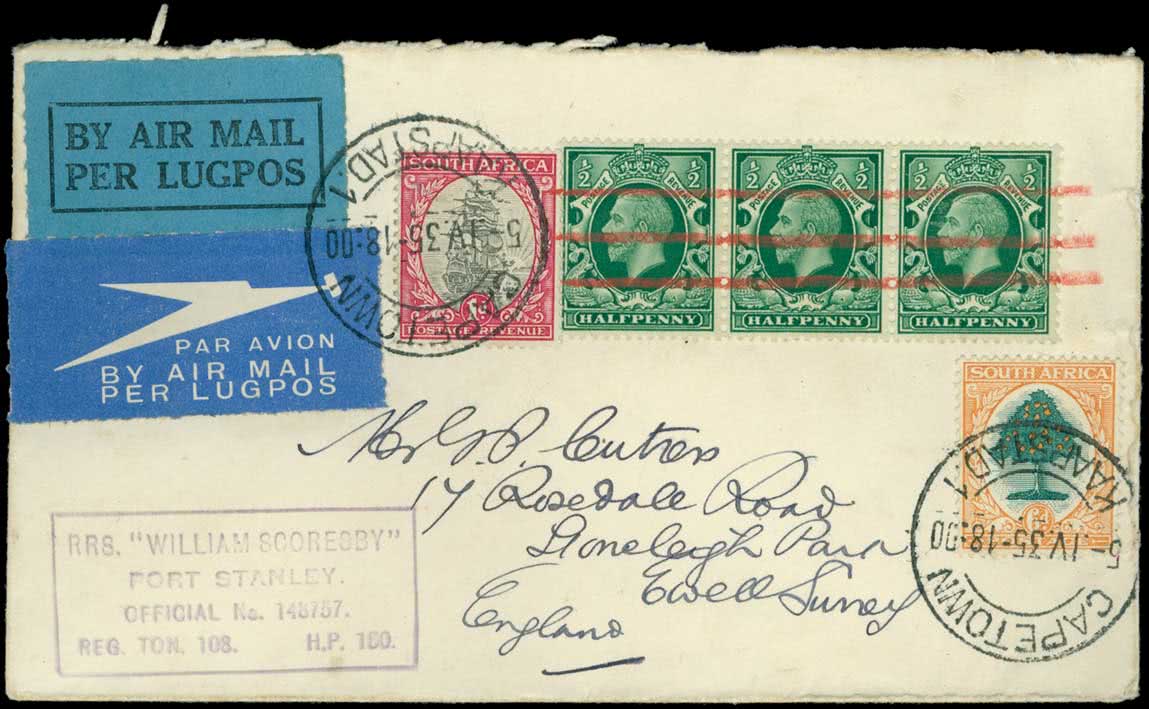 BY AIR MAIL
PER LUGPOS
PAR AVION
BY AIR MAIL
PER LUGPOS
SOUTH AFRICA
1D
POSTAGE REVENUE
CAPE TOWN
5-IV.35-18:00
KAAPSTAD 1
½ ½
POSTAGE REVENUE
HALFPENNY
½ ½
POSTAGE REVENUE
HALFPENNY
½ ½
POSTAGE REVENUE
HALFPENNY
SOUTH AFRICA
6D
CAPE TOWN
5-IV.35-18:00
KAAPSTAD 1
17 Rosedale Road
Stoneleigh Park
Ewell Surrey
England
RRS. "WILLIAM SCORESBY"
PORT STANLEY.
OFFICIAL No. 148757.
REG. TON, 108. H.P. 180.